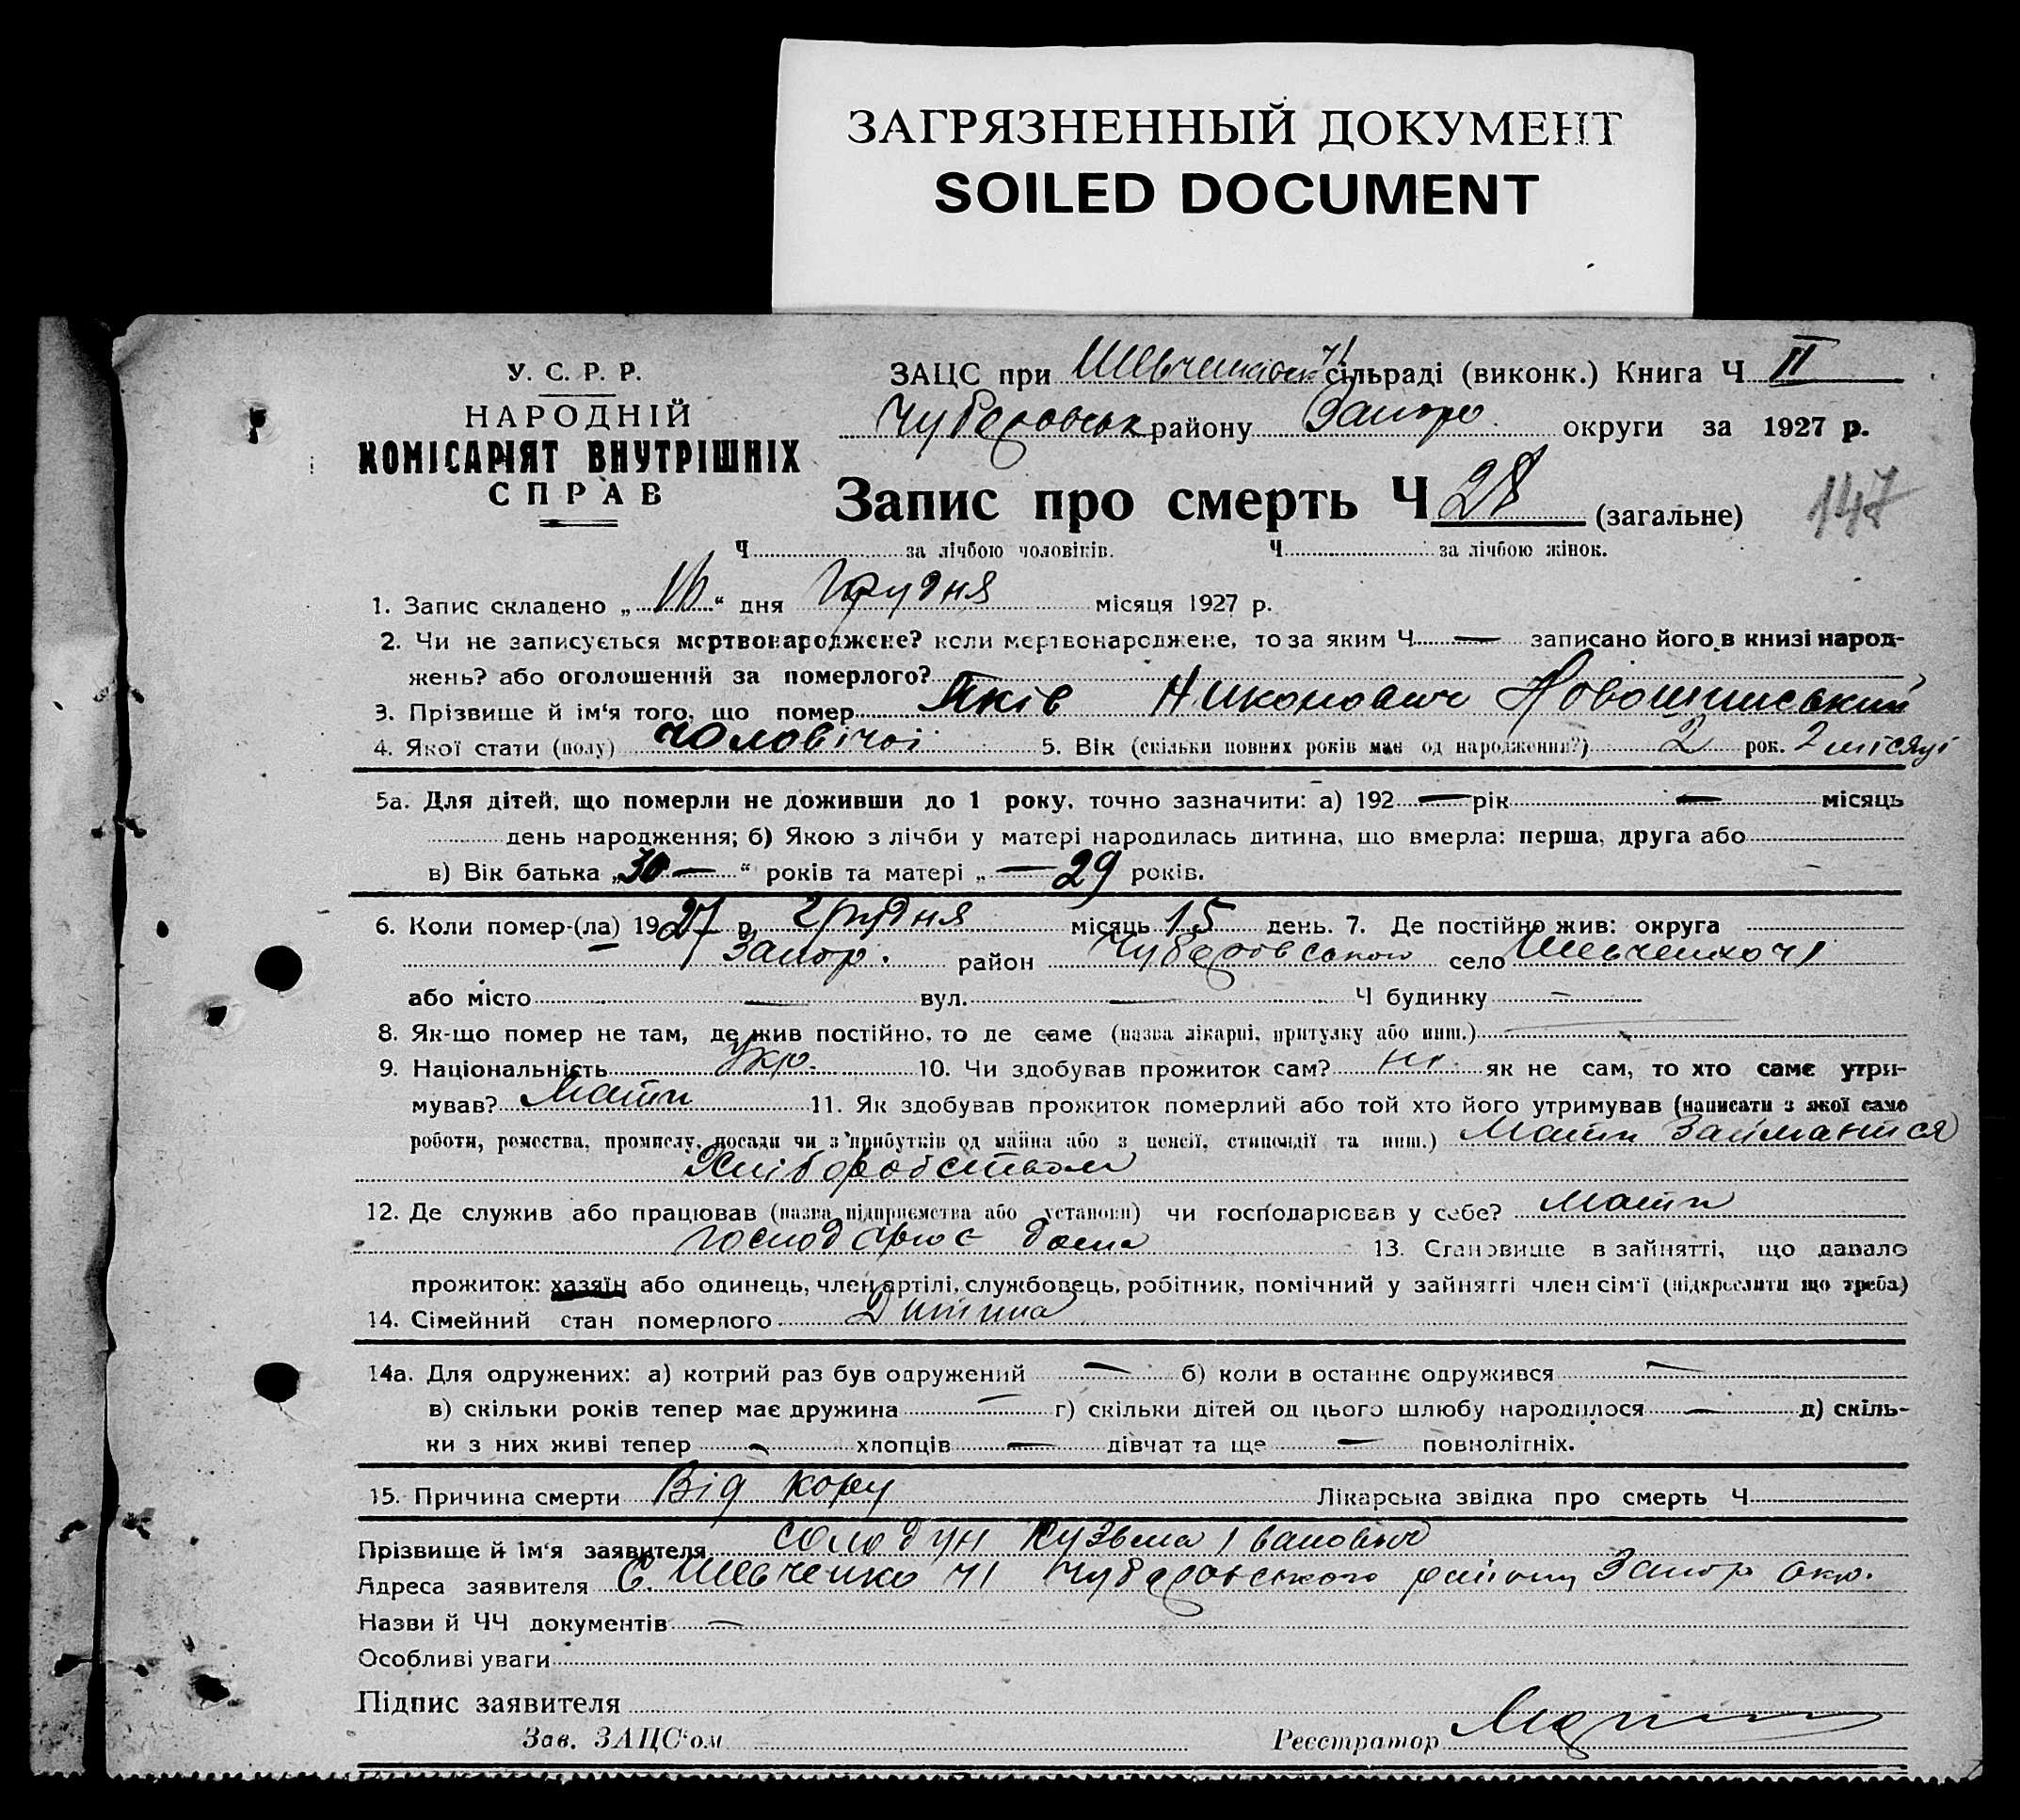 ЗАГРЯЗНЕННЫЙ ДОКУМЕНТ
SOILED DOCUMENT
У. С. Р. Р.
НАРОДНІЙ
КОМІСАРІЯТ ВНУТРІШНІХ
СПРАВ
ЗАЦС при сільраді (виконк.) Книга Ч II
Чубаровськ району Запор. округи за 1927 р.
Запис про смерть Ч 28 (загальне)
147
Ч за лічбою чоловіків. Ч за лічбою жінок.
1. Запис складено „16“ дня Грудня місяця 1927 р.
2. Чи не записується мертвонароджене? коли мертвонароджене, то за яким Ч — записано його в книзі народ-
жень? або оголошений за померлого?
3. Прізвище й ім‘я того, що помер Яків Никонович
4. Якої стати (полу) чоловічої 5. Вік (скільки повних років має од народження?) 2 рок. 2 місяці
5а. Для дітей, що померли не доживши до 1 року, точно зазначити: а) 192 — рік — місяць
день народження; б) Якою з лічби у матері народилась дитина, що вмерла: перша, друга або
в) Вік батька „30 —“ років та матері „— 29 років.
6. Коли помер-(ла) 1927 р. грудня місяць 15 день. 7. Де постійно жив: округа
Запор. район Чубаровського село Шевченко ч1
або місто — вул. — Ч будинку —
8. Як-що помер не там, де жив постійно, то де саме (назва лікарні, притулку або инш.)
9. Національність Укр. 10. Чи здобував прожиток сам? ні. як не сам, то хто саме утри-
мував? Мати 11. Як здобував прожиток померлий або той хто його утримував (написати з якої само
роботи, ремества, промислу, посади чи з’прибутків од майна або з пенсії, стипендії та инш.) Мати займається
Хліборобством
12. Де служив або працював (назва підприємства або установи) чи господарював у себе? Мати
господарює дома 13. Становище в зайнятті, що давало
прожиток: хазяїн або одинець, член артілі, службовець, робітник, помічний у зайнятті член сім‘ї (підкреслити що треба)
14. Сімейний стан померлого Дитина
14а. Для одружених: а) котрий раз був одружений — б) коли в останнє одружився —
в) скільки років тепер має дружина — г) скільки дітей од цього шлюбу народилося — д) скіль-
ки з них живі тепер — хлопців — дівчат та ще — повнолітніх.
15. Причина смерти Від кору Лікарська звідка про смерть Ч
Прізвище й ім‘я заявителя Солодун Кузьма Іванович
Адреса заявителя С. Шевченко ч1 Чубаровського району Запор окр.
Назви й ЧЧ документів —
Особливі уваги
Підпис заявителя
Зав. ЗАЦС‘ом Реєстратор